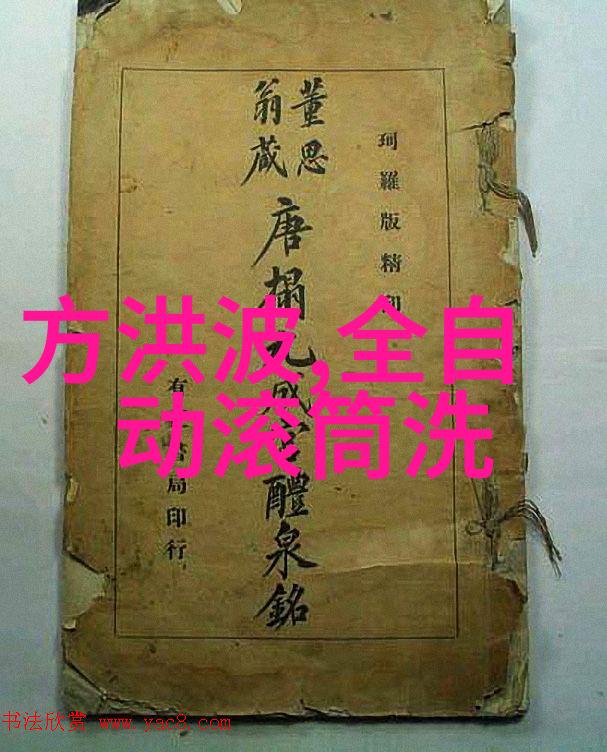 珂羅版精印
董思
翁藏
唐搨九成宮醴泉銘
有書局印行
方洪波,全自
动滚筒洗
书法欣赏 www.yac8.com